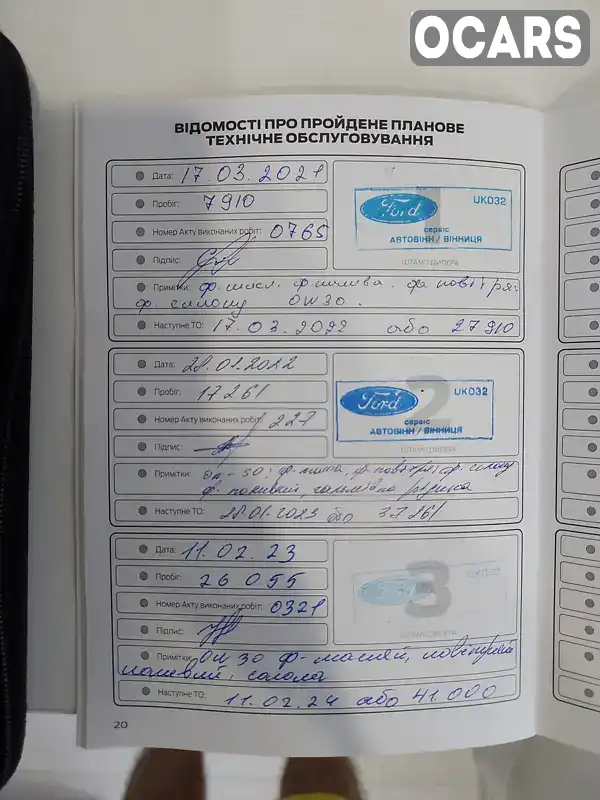 OCARS
ВІДОМОСТІ ПРО ПРОЙДЕНЕ ПЛАНОВЕ
ТЕХНІЧНЕ ОБСЛУГОВУВАННЯ
Дата: 17.03.2021
Пробіг: 7910
Номер Акту виконаних робіт: 0765
Підпис:
Ford UK032
сервіс
АВТОВІНН / ВІННИЦЯ
ШТАМП ДИЛЕРА
Примітки: ф. масл. ф палива.
ф. салону 0W30.
Наступне ТО: 17.03.2022 або 27910
Дата: 28.01.2022
Пробіг: 17261
Номер Акту виконаних робіт: 227
Підпис:
2
Ford UK032
сервіс
АВТОВІНН / ВІННИЦЯ
ШТАМП ДИЛЕРА
Примітки: ф. салону
гальмівна рідина
Наступне ТО: 28.01.2023 або 37261
Дата: 11.02.23
Пробіг: 26055
Номер Акту виконаних робіт: 0321
Підпис:
3
Ford UK032
ШТАМП ДИЛЕРА
Примітки: 0W30 ф-масляй,
салона
Наступне ТО: 11.02.24 або 41.000
20